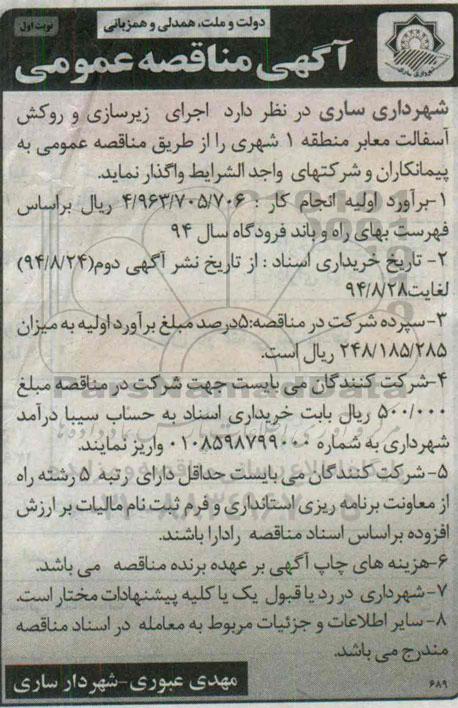 دولت و ملت، همدلی و همزبانی
نوبت اول
شهرداری ساری
آگهی مناقصه عمومی
شهرداری ساری در نظر دارد اجرای زیرسازی و روکش
آسفالت معابر منطقه ۱ شهری را از طریق مناقصه عمومی به
پیمانکاران و شرکتهای واجد الشرایط واگذار نماید.
۱-برآورد اولیه انجام کار : ۴/۹۶۳/۷۰۵/۷۰۶ ریال براساس
فهرست بهای راه و باند فرودگاه سال ۹۴
۲- تاریخ خریداری اسناد : از تاریخ نشر آگهی دوم(۹۴/۸/۲۴)
لغایت۹۴/۸/۲۸
۳-سپرده شرکت در مناقصه:۵درصد مبلغ برآورد اولیه به میزان
۲۴۸/۱۸۵/۲۸۵ ریال است.
۴-شرکت کنندگان می بایست جهت شرکت در مناقصه مبلغ
۵۰۰/۰۰۰ ریال بابت خریداری اسناد به حساب سیبا درآمد
شهرداری به شماره ۰۱۰۸۵۹۸۷۹۹۰۰۰ واریز نمایند.
۵-شرکت کنندگان می بایست حداقل دارای رتبه ۵ رشته راه
از معاونت برنامه ریزی استانداری و فرم ثبت نام مالیات بر ارزش
افزوده براساس اسناد مناقصه رادارا باشند.
۶-هزینه های چاپ آگهی بر عهده برنده مناقصه می باشد.
۷-شهرداری در رد یا قبول یک یا کلیه پیشنهادات مختار است.
۸-سایر اطلاعات و جزئیات مربوط به معامله در اسناد مناقصه
مندرج می باشد.
مهدی عبوری-شهردار ساری
۶۸۹
ParsNamadData